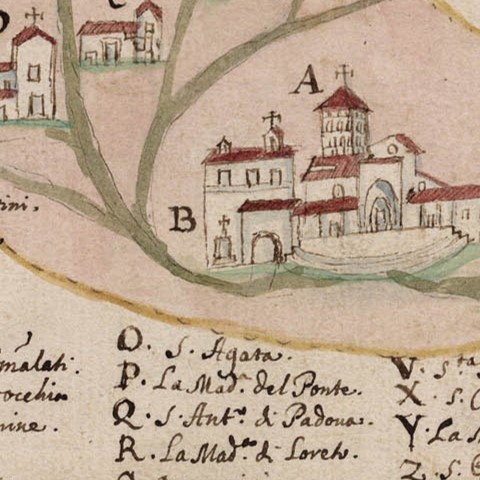 A
B
tini.
malati.
rine.
O. S. Agata.
P. La Mad.ª del Ponte.
Q. S. Ant.º di Padoua.
R. La Mad.ª di Loreto.
V. S.ta
X. S.
Y. La
Z. S.